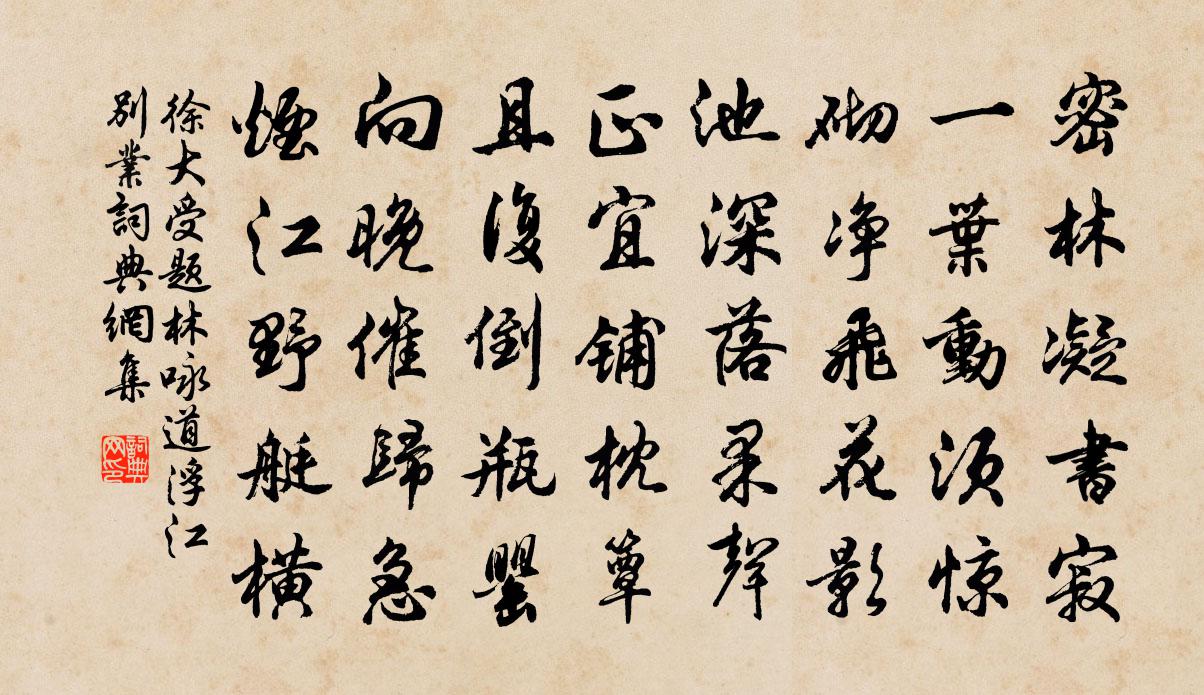 密林凝書寂
一葉動須惊
砌净飛花影
池深落果聲
正宜鋪枕簟
且復倒瓶罌
向晚催歸急
煙江野艇橫
徐大受題林咏道浮江
別業詞典網集
詞典网印